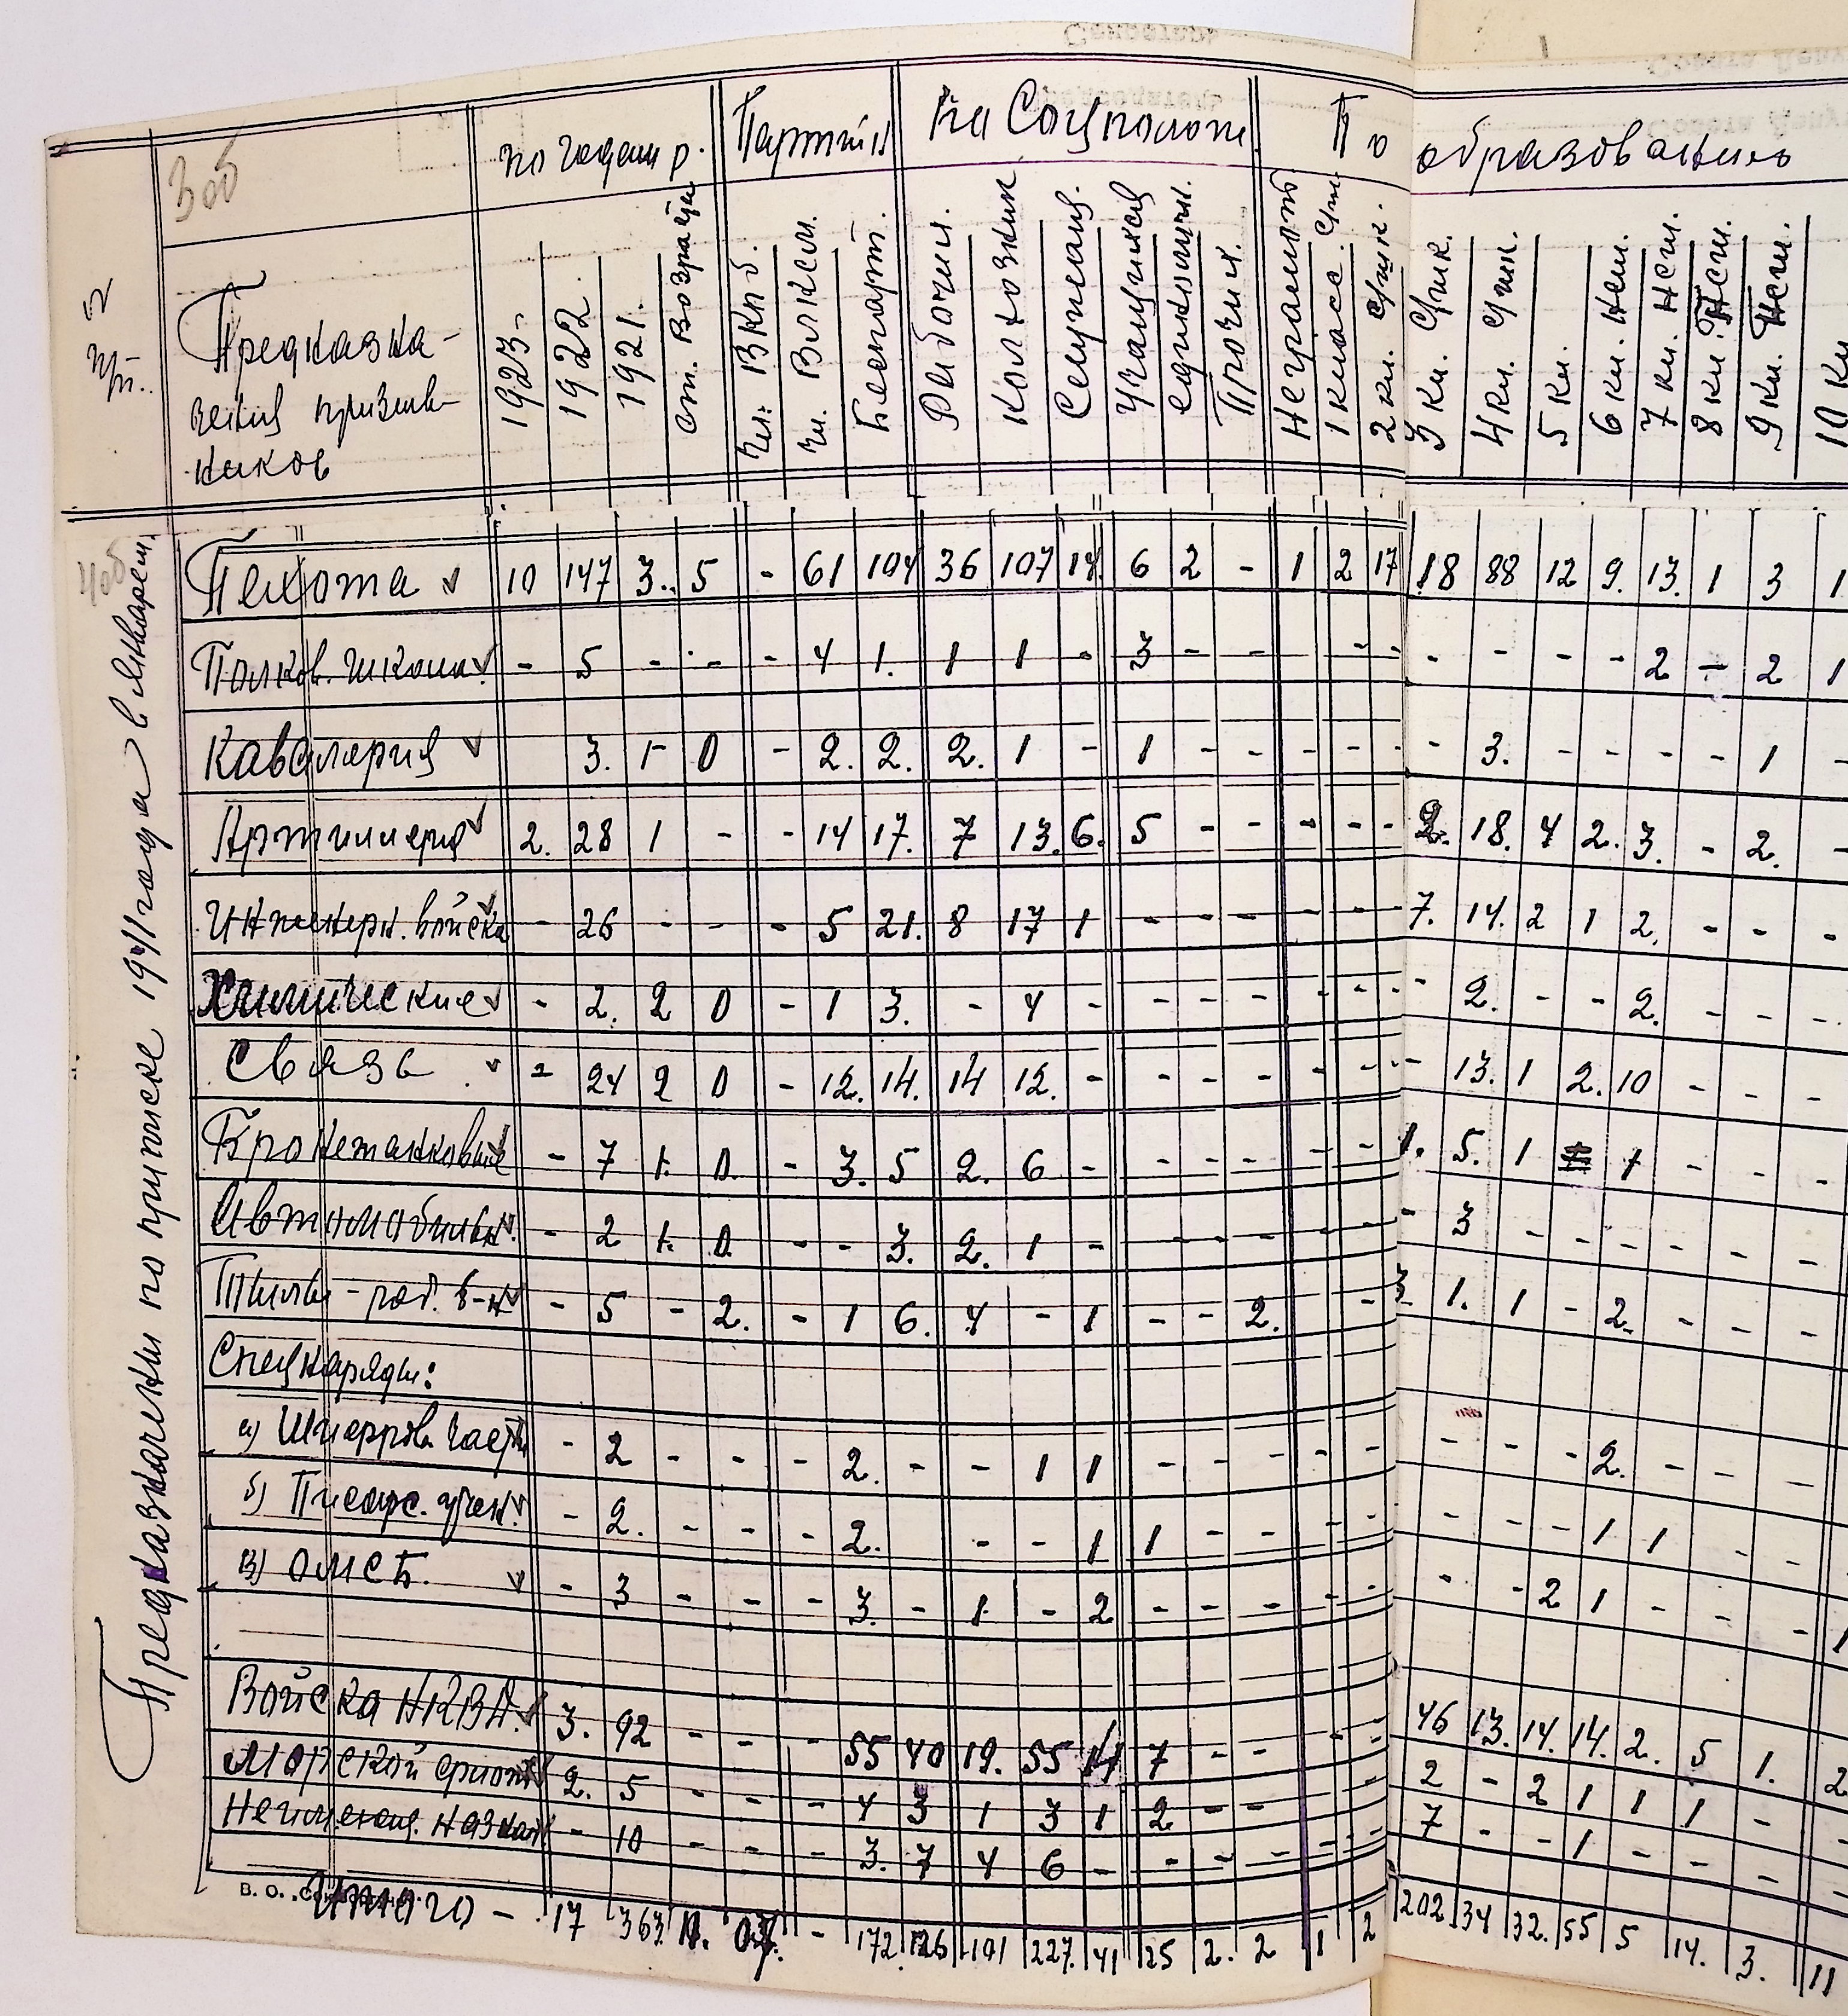 3об
№ п/п.
Предназна-
чения призыв-
ников
по годам р.
Партийн
по Соцположен
По образованию
1923.
1922.
1921.
ст. возраста
Чл. ВКП б.
чл. ВЛКСМ.
Беспарт.
Рабочих.
Колхозник
Служащ.
Учащихся
единолични.
Прочих.
Неграмотн
1 класс. с/шк.
2 кл. с/шк.
3 кл. с/шк.
4 кл. с/шк.
5 кл.
6 кл. НСШ.
7 кл. НСШ.
8 кл. НСШ.
9 кл. НСШ.
10 кл
4об
Предназначены по приписке 1941 года в январем
Пехота 10 147 3. 5 - 61 104 36 107 14. 6 2 - 1 2 17 18 88 12 9. 13. 1 3 1
Полков. школа. - 5 - - - 4 1. 1 1 - 3 - - - - - - - - 2 - 2 1
Кавалерия 3. 1 - 0 - 2. 2. 2. 1 - 1 - - - - - - 3. - - - - 1 -
Артиллерия 2. 28 1 - - 14 17. 7 13. 6. 5 - - - - - 2. 18. 4 2. 3. - 2. -
Инженерн. войска - 26 - - - 5 21. 8 17 1 - - - - - - 7. 14. 2 1 2. - - -
Химические - 2. 2 0 - 1 3. - 4 - - - - - - - - 2. - - 2. - - -
Связь - 24 2 0 - 12. 14. 14 12. - - - - - - - - 13. 1 2. 10 - - -
Бронетанковые - 7 1. 0. - 3. 5 2. 6 - - - - - - 1. 5. 1 1 - - -
Автомобильн. - 2 1. 0. - - 3. 2. 1 - - - - - - - 3 - - - - - -
Тылов - раб. б-н - 5 - 2. - 1 6. 4 - 1 - - 2. - 3 1. 1 - 2. - - -
Спецнаряды:
а) Шифров. части - 2 - - - 2. - - 1 1 - - - - - - - - - 2. - - -
б) Писарс. - 2. - - - 2. - - 1 1 - - - - - - - - 1 1 - -
в) ОМСБ. - 3 - - - 3. - 1 - 2 - - - - - - - 2 1 - - - 1
Войска НКВД. 3. 92 - - - 55 40 19. 55 14 7 - - - - 46 13. 14. 14. 2. 5 1. 2
Морской флот 2. 5 - - - 4 3 1 3 1 2. - - - 2 - 2 1 1 1 -
Неимеющ. назнач - 10 - - - 3. 7 4 6 - - - - - - - 7 - - 1 - - -
В. О.
Итого - 17 363. - 172. 126 101 227. 41 25 2. 2 1 2 202 34 32. 55 5 14. 3. 11